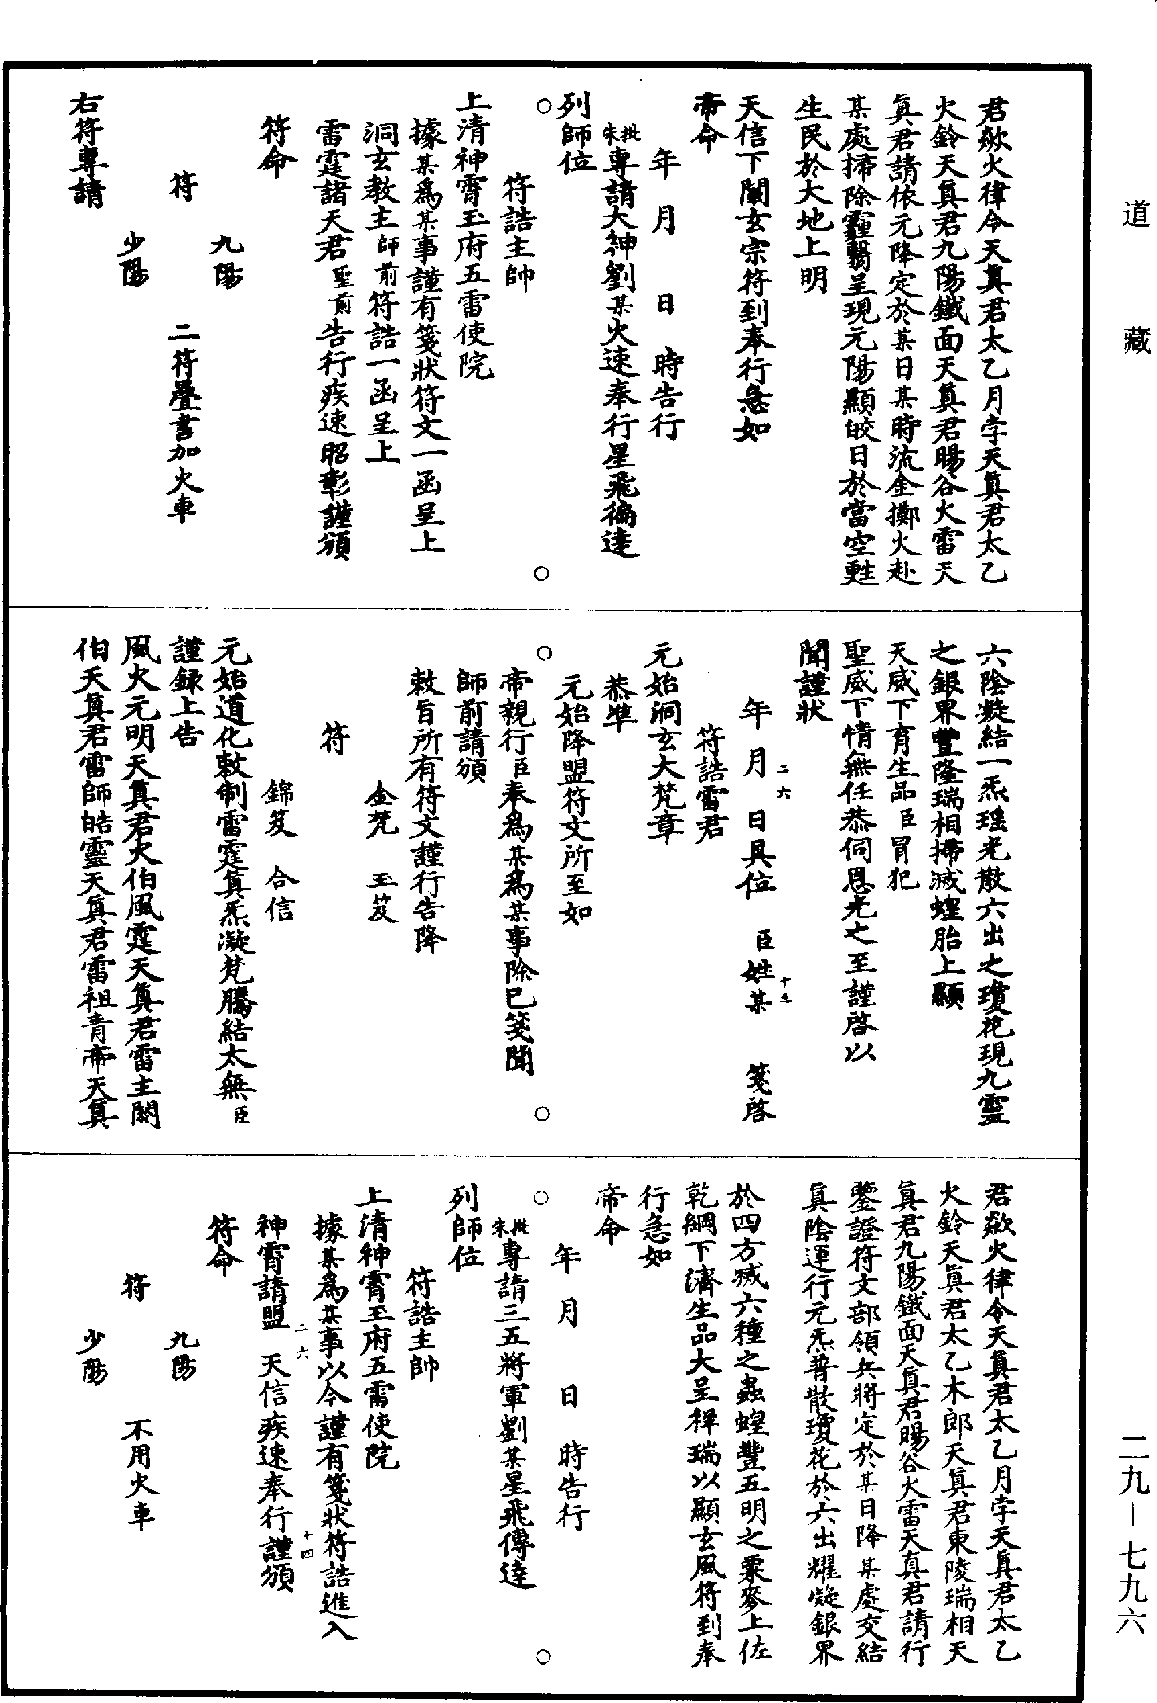 道藏
君歘火律令天真君太乙月孛天真君太乙
火鈴天真君九陽鐵面天真君暘谷火雷天
真君請依元降定於某日某時流金擲火赴
某處掃除霾翳呈現元陽顯皎日於當空甦
生民於大地上明
天信下闡玄宗符到奉行急如
帝命
年 月 日 時告行
朱批專請大神劉某火速奉行星飛徧達
列師位
○ ○
符誥主帥
上清神霄玉府五雷使院
據某爲某事謹有箋狀符文一函呈上
洞玄教主師前符誥一函呈上
雷霆諸天君聖前告行疾速昭彰謹頒
符命
九陽
符 二符疊書加火車
少陽
右符專請
六陰凝結一炁瑶光散六出之瓊花現九靈
之銀界豐隆瑞相掃滅蝗胎上顯
天威下育生品臣冒犯
聖威下情無任恭伺恩光之至謹啓以
聞謹狀
二六 十三
年 月 日具位 臣姓某 箋啓
符誥雷君
元始洞玄大梵章
恭準
元始降盟符文所至如
○ ○
帝親行臣奉爲某爲某事除已箋聞
師前請頒
敕旨所有符文謹行告降
金梵 玉笈
符
錦笈 合信
元始道化敕制雷霆真炁凝梵騰結太無臣
謹録上告
風火元明天真君火伯風霆天真君雷主閼
伯天真君雷師皓靈天真君雷祖青帝天真
君歘火律令天真君太乙月孛天真君太乙
火鈴天真君太乙木郎天真君東陵瑞相天
真君九陽鐵面天真君暘谷火雷天真君請行
鑒證符文部領兵將定於某日降某處交結
真陰運行元炁普散瓊花於六出耀凝銀界
於四方滅六種之蟲蝗豐五明之粟麥上佐
乾綱下濟生品大呈禪瑞以顯玄風符到奉
行急如
帝命
年 月 日 時告行
○ ○
朱批專請三五將軍劉某星飛傳達
列師位
符誥主帥
上清神霄玉府五雷使院
據某爲某事以今謹有箋狀符誥進入
二六 十四
神霄請盟 天信疾速奉行謹頒
符命
九陽
符 不用火車
少陽
二九—七九六